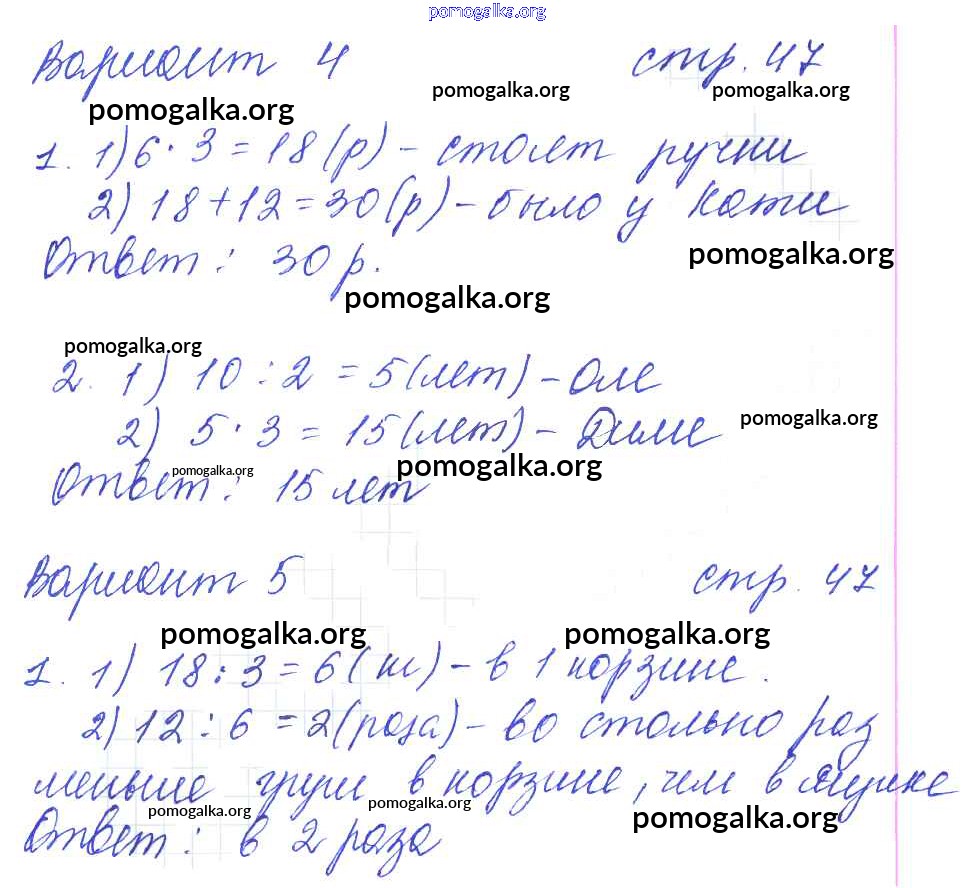 pomogalka.org
Вариант 4 стр. 47
pomogalka.org pomogalka.org pomogalka.org
1. 1) 6 · 3 = 18 (р) - стоят ручки
2) 18 + 12 = 30 (р) - было у Кати
Ответ: 30 р. pomogalka.org
pomogalka.org
pomogalka.org
2. 1) 10 : 2 = 5 (лет) - Оле
2) 5 · 3 = 15 (лет) - Диме pomogalka.org
pomogalka.org pomogalka.org
Ответ: 15 лет
Вариант 5 стр. 47
pomogalka.org pomogalka.org
1. 1) 18 : 3 = 6 (кг) - в 1 корзине.
2) 12 : 6 = 2 (раза) - во столько раз
меньше груш в корзине, чем в ящике
pomogalka.org pomogalka.org pomogalka.org
Ответ: в 2 раза